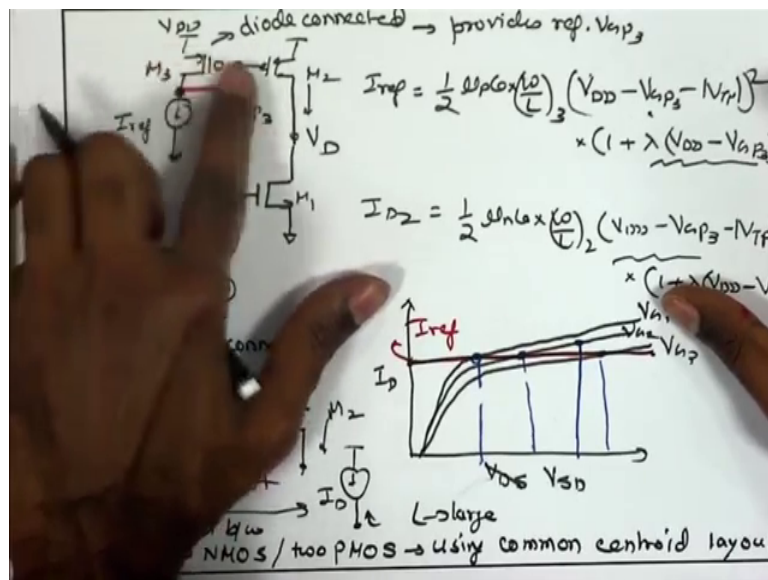 VDD → diode connected → provides ref. VGP3
M3
M2
Iref
P3
VD
M1
Iref = 1/2 μpCox (W/L)3 (VDD - VGP3 - |VTP|)2
× (1 + λ(VDD - VGP3
ID2 = 1/2 μnCox (W/L)2 (VDD - VGP3 - |VTP
× (1 + λ(VDD - V
Iref
VG1
VG2
VG3
ID
VDS VSD
conn
M2
ID
L → large
b/w
NMOS / two PMOS → using common centroid layou